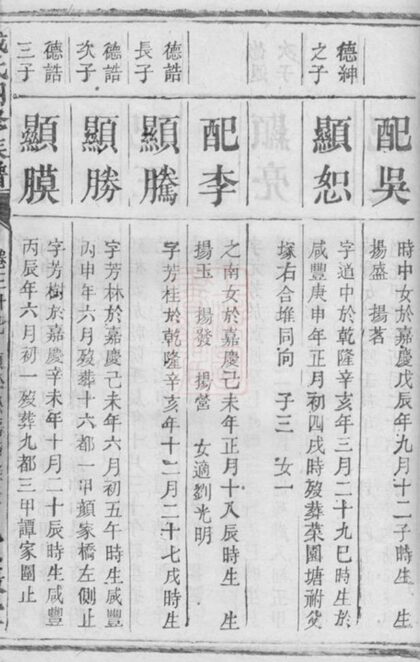 配吳
時中女於嘉慶戊辰年九月十二子時生 生
揚盛 揚茗
德紳
之子
顯恕
字道中於乾隆辛亥年三月二十九巳時生於
咸豐庚申年正月初四戌時歿葬菜園塘祔父
塚右合堆同向 子三 女一
配李
之南女於嘉慶己未年正月十八辰時生 生
揚玉 揚發 揚營 女適劉光明
德誥
長子
顯騰
字芳桂於乾隆辛亥年十二月二十七戌時生
德誥
次子
顯勝
字芳林於嘉慶己未年六月初五午時生咸豐
丙申年六月歿葬十六都一甲顏家橋左側止
德誥
三子
顯膜
字芳樹於嘉慶辛未年十月二十辰時生咸豐
丙辰年六月初一歿葬九都三甲譚家園止